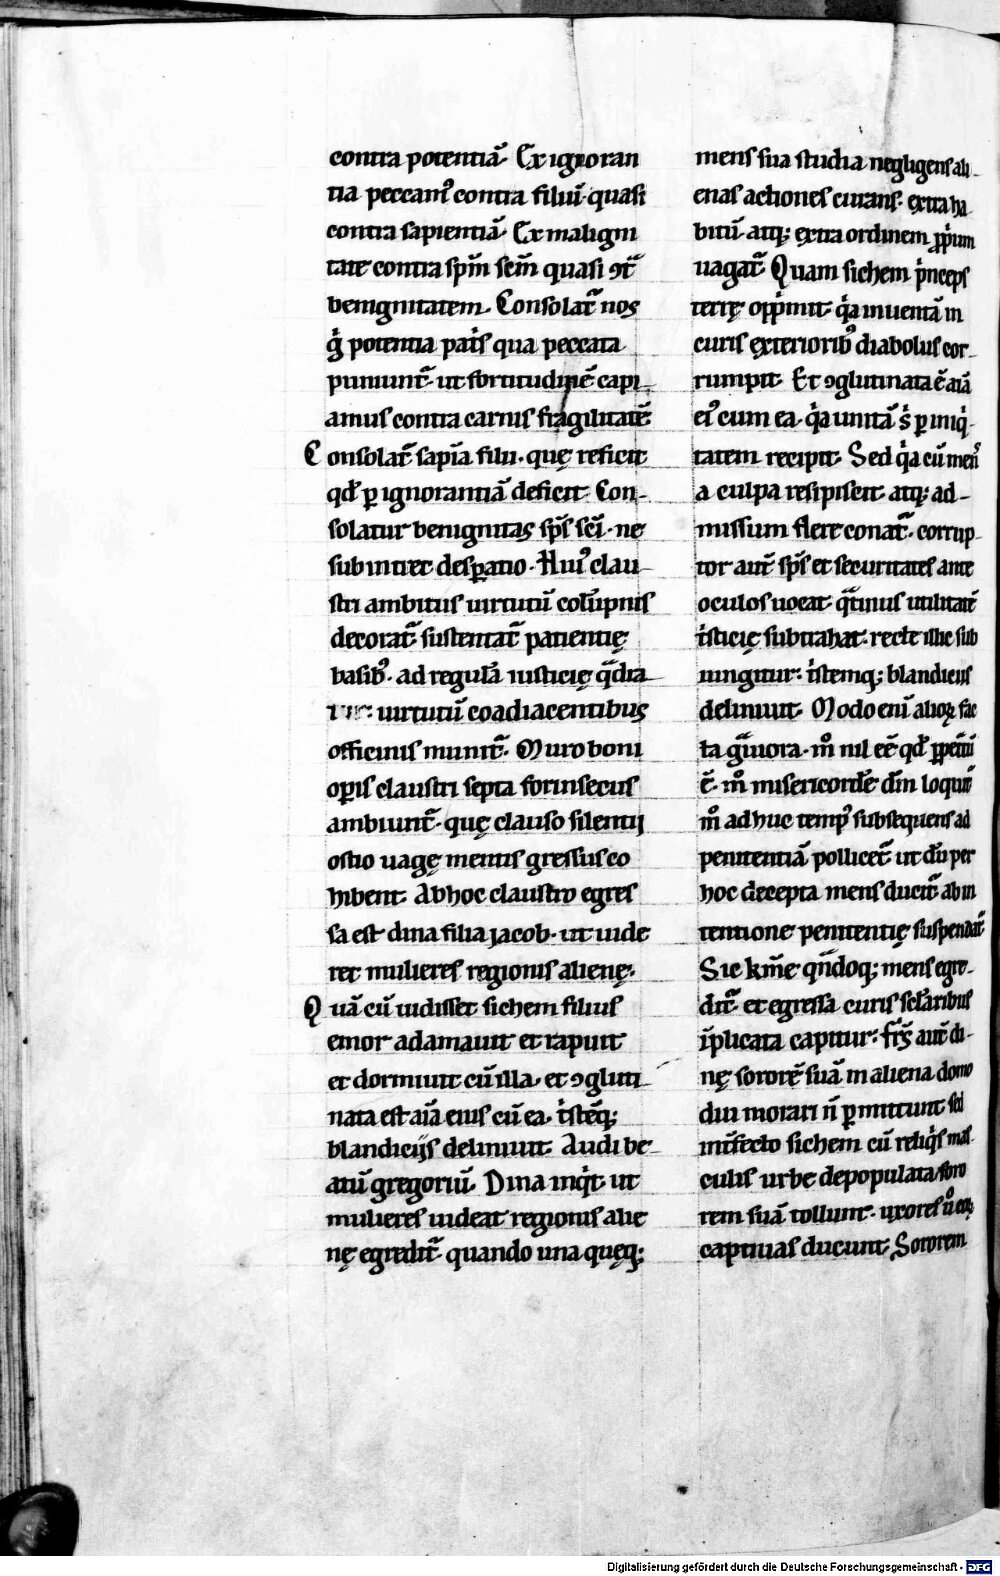 contra potentiā. Ex ignoran
tia peccamꝰ contra filiū. quasi
contra sapientiā. Ex maligni
tate contra sp̄m sc̄m quasi ↄt᷑
benignitatem. Consolat᷑ nos
g̊ potentia pat͛s qua peccata
puniunt᷑. ut fortitudinē capi
amus contra carnis fragilitatē.
Consolat᷑ sapīa filii. quę reficit
qđ ꝑ ignorantiā deficit. Con-
solatur benignitas sp̄s sc̄i. ne
subintret desꝑatio. Huiꝰ clau-
stri ambitus uirtutū colūpnis
decorat᷑ sustentat᷑ patientię
basibꝰ. ad regulā iusticię q̄dra
uirtutū coadiacentibus
officinis munit᷑. Muro boni
oꝑis claustri septa forinsecus
ambiunt᷑. quę clauso silentij
ostio uagę mentis gressus co
hibent. Ab hoc claustro egres
sa est dina filia jacob. ut uide
ret mulieres regionis alienę.
Quā cū uidisset sichem filius
emor adamauit et rapuit
et dormiuit cū illa. et ↄgluti
nata est aīa eius cū ea. t͛stēq;
blandicijs deliniuit. Audi be-
atū gregoriū. Dina inq͛t ut
mulieres uideat regionis alie
nę egredit᷑. quando una quęq;
mens sua studia negligens ali-
enas actiones curans. extra ha
bitū atq; extra ordinem ꝓp͛um
uagat᷑. Quam sichem p͛nceps
terrę opp͛mit. q͛a inuentā in
curis exteriorib⁹ diabolus cor-
rumpit. Et ↄglutinata ē aīa
eiꝰ cum ea. q͛a unitā s͛ ꝑ iniq͛-
tatem recipit. Sed q͛a cū men͛s
a culpa resipiscit. atq; ad-
missum flere conat᷑. corrup-
tor aut̄ sp̄s et securitates ante
oculos uocat. q̄tinus utilitatē
t͛sticię subtrahat. recte illic sub
iungitur: t͛stemq; blandiciis
deliniuit. Modo eni̅ alioꝝ fac
ta g̃uiora. m̊ nil eē qđ ꝓpetiū
ē. m̊ misericordē dm̄ loquit᷑
m̊ adhuc tempꝰ subsequens ad
penitentiā pollicet᷑. ut dū per
hoc decepta mens ducit᷑ ab in
tentione penitentię suspendat᷑.
Sic km̄e qn̄doq; mens egre-
dit᷑. et egressa curis sc̄laribus
īplicata capitur: fr̄s aut̄ di-
nę sororē suā in aliena domo
diu morari n̄ ꝑmittunt sed
int̄fecto sichem cū reliq͛s mas
culis urbe depopulata soro
rem suā tollunt. uxores ů eoꝝ
captiuas ducunt. Sororem
Digitalisierung gefördert durch die Deutsche Forschungsgemeinschaft - DFG